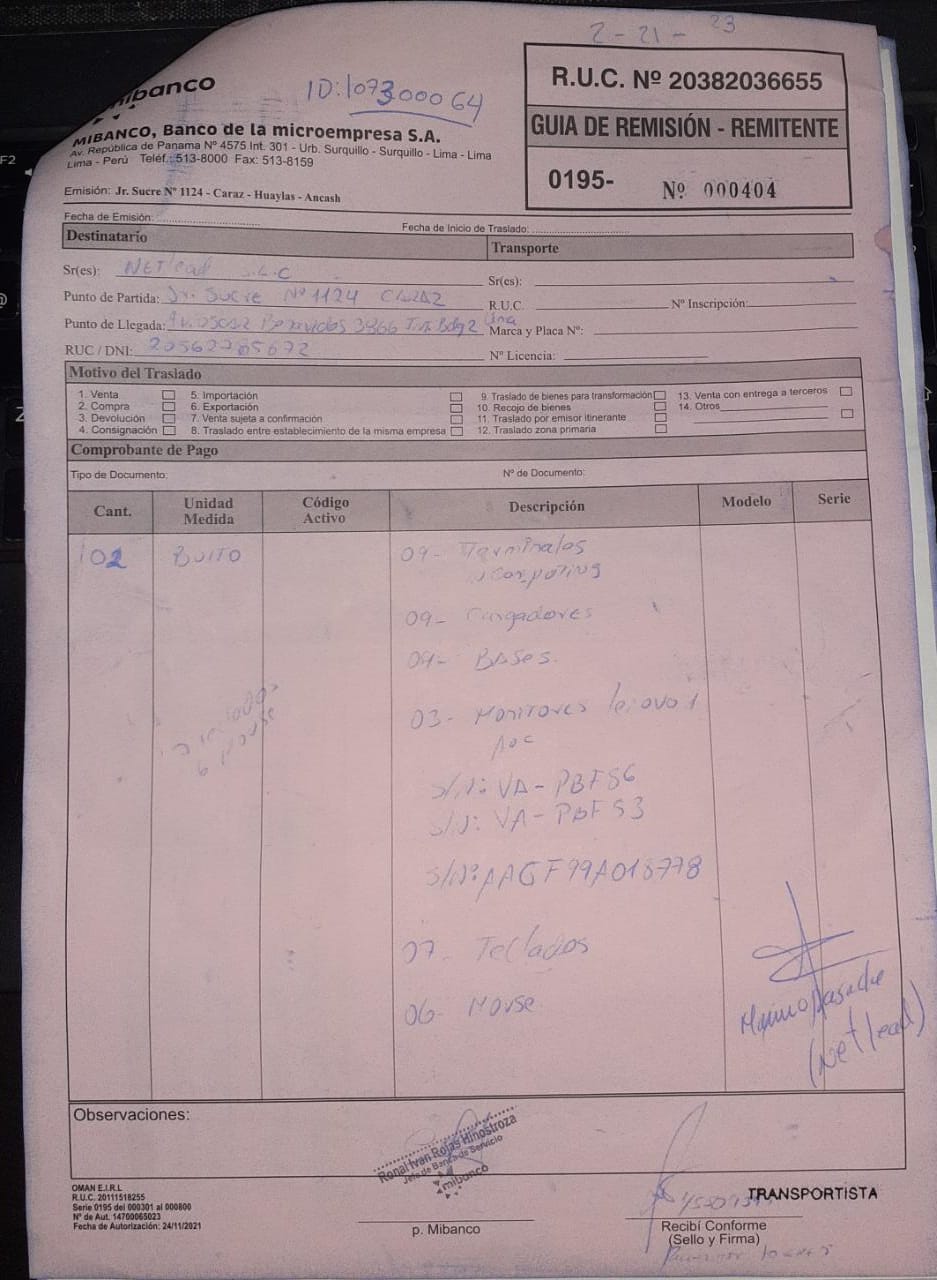 2-21-23
mibanco
ID:107300064
MIBANCO, Banco de la microempresa S.A.
Av. República de Panama Nº 4575 Int. 301 - Urb. Surquillo - Surquillo - Lima - Lima
Lima - Perú Teléf.: 513-8000 Fax: 513-8159
Emisión: Jr. Sucre Nº 1124 - Caraz - Huaylas - Ancash
R.U.C. Nº 20382036655
GUIA DE REMISIÓN - REMITENTE
0195- Nº 000404
Fecha de Emisión: Fecha de Inicio de Traslado:
Destinatario Transporte
Sr(es): Netlead Sr(es):
Punto de Partida: Jr. Sucre Nº 1124 Caraz R.U.C. Nº Inscripción:
Punto de Llegada: Av. Oscar Benavides 3866 Marca y Placa Nº:
RUC / DNI: 20562785672 Nº Licencia:
Motivo del Traslado
1. Venta 5. Importación 9. Traslado de bienes para transformación 13. Venta con entrega a terceros
2. Compra 6. Exportación 10. Recojo de bienes 14. Otros
3. Devolución 7. Venta sujeta a confirmación 11. Traslado por emisor itinerante
4. Consignación 8. Traslado entre establecimiento de la misma empresa 12. Traslado zona primaria
Comprobante de Pago
Tipo de Documento: Nº de Documento:
Cant. Unidad Medida Código Activo Descripción Modelo Serie
02 Bulto 09- Terminales
09- Cargadores
09- Bases.
03- Monitores lenovo 1
Aoc
S/N: VA-PBF56
S/N: VA-PBF53
S/Nº: AAGF99A018778
07- Teclados
06- Mouse.
(Netlead)
Observaciones:
Ronal Ivan Rojas Hinostroza
Jefe de Banca de Servicio
mibanco
OMAN E.I.R.L
R.U.C. 20111518255
Serie 0195 del 000301 al 000800
Nº de Aut. 14700065023
Fecha de Autorización: 24/11/2021
p. Mibanco
TRANSPORTISTA
Recibí Conforme
(Sello y Firma)